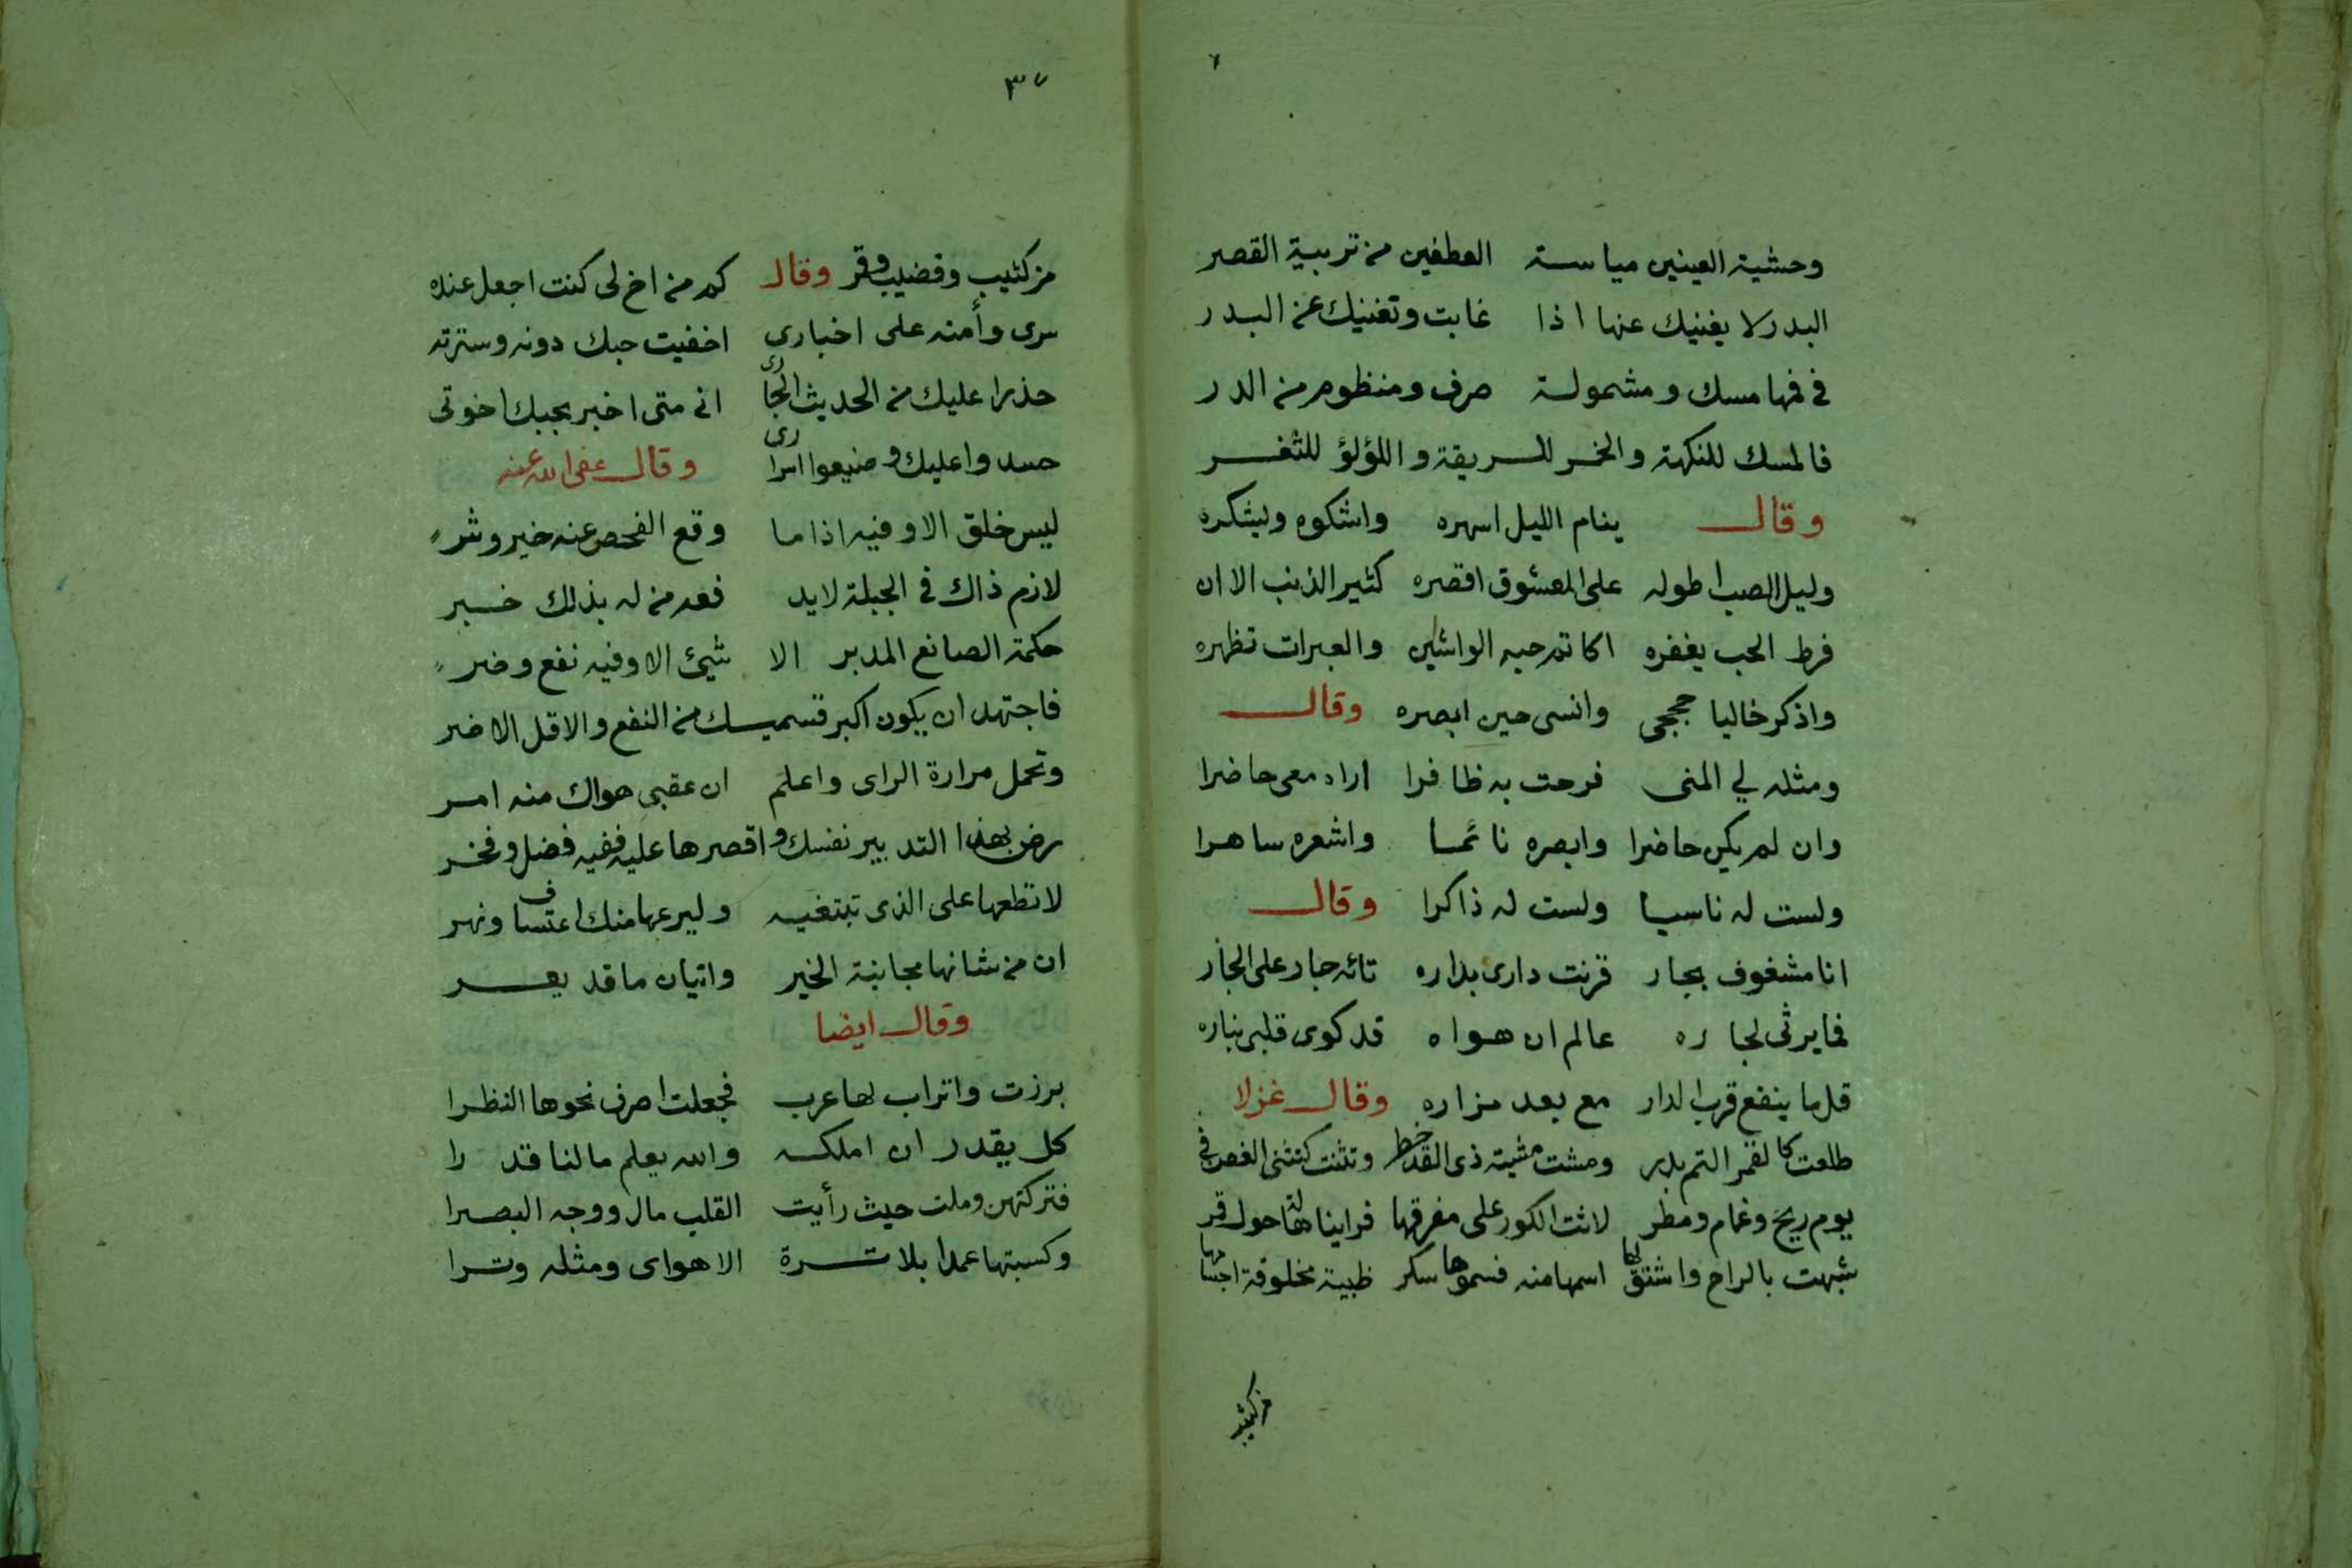 وحشية العينين مياسة العطفين من تربية القصر
البدر لا يغنيك عنها اذا غابت وتغنيك عن البدر
في فمها مسك ومشمولة صرف ومنظوم من الدر
فالمسك للنكهة والخمر للريقة واللؤلؤ للثغر
وقال ينام الليل اسهره واشكوه ويشكره
وليل الصب اطوله على المعشوق اقصره كثير الذنب الا ان
فرط الحب يغفره اكاتم حبه الواشين والعبرات تظهره
واذكر خاليا حججي وانسى حين ابصره وقال
ومثله لي المنى فرحت به ظافرا اراه معي حاضرا
وان لم يكن حاضرا وابصره نائما واشعره ساهرا
ولست له ناسيا ولست له ذاكرا وقال
انا مشغوف بجار قرنت داري بداره تائه جار على الجار
فما يرثى لجاره عالم ان هواه قد كوى قلبى بناره
قل ما ينفع قرب الدار مع بعد مزاره وقال غزلا
طلعت كالقمر التم بدر ومشت مشية ذى القد خطر وتثنت كتثنى الغصن في
يوم ريح وغمام ومطر لاثت الكور على مفرقها فراينا هالة حول قمر
شبهت بالراح واشتق لها اسمها منه فسموها سكر ظبية مخلوقة اجنتها
من كثيب
٣٧
من كثيب وقضيب وقمر وقال كم من اخ لى كنت اجعل عنده
سرى وأمنه على اخبارى اخفيت حبك دونه وسترته
حذرا عليك من الحديث الجارى انى متى اخبر بحبك اخوتى
حسدوا عليك وضيعوا اسرارى وقال عفى الله عنه
ليس خلق الا وفيه اذا ما وقع الفحص عنه خير وشر
لازم ذاك في الجبلة لا يد فعه من له بذلك خبر
حكمة الصانع المدبر الا شيئ الا وفيه نفع وضر
فاجتهد ان يكون اكبر قسميك من النفع والاقل الاضر
وتحمل مرارة الراى واعلم ان عقبى هواك منه امر
رض بهذا التدبير نفسك واقصرها عليه ففيه فضل وفخر
لا تطعها على الذى تبتغيه وليرعها منك اعتساف ونهر
ان من شانها مجانبة الخير واتيان ما قد يعر
وقال ايضا
برزت واتراب لها عرب فجعلت اصرف نحوها النظرا
كل يقدر ان املكه والله يعلم ما لنا قد را
فتركتهن وملت حيث رأيت القلب مال ووجه البصرا
وكسبتها عمدا بلا ترة الا هواى ومثله وترا